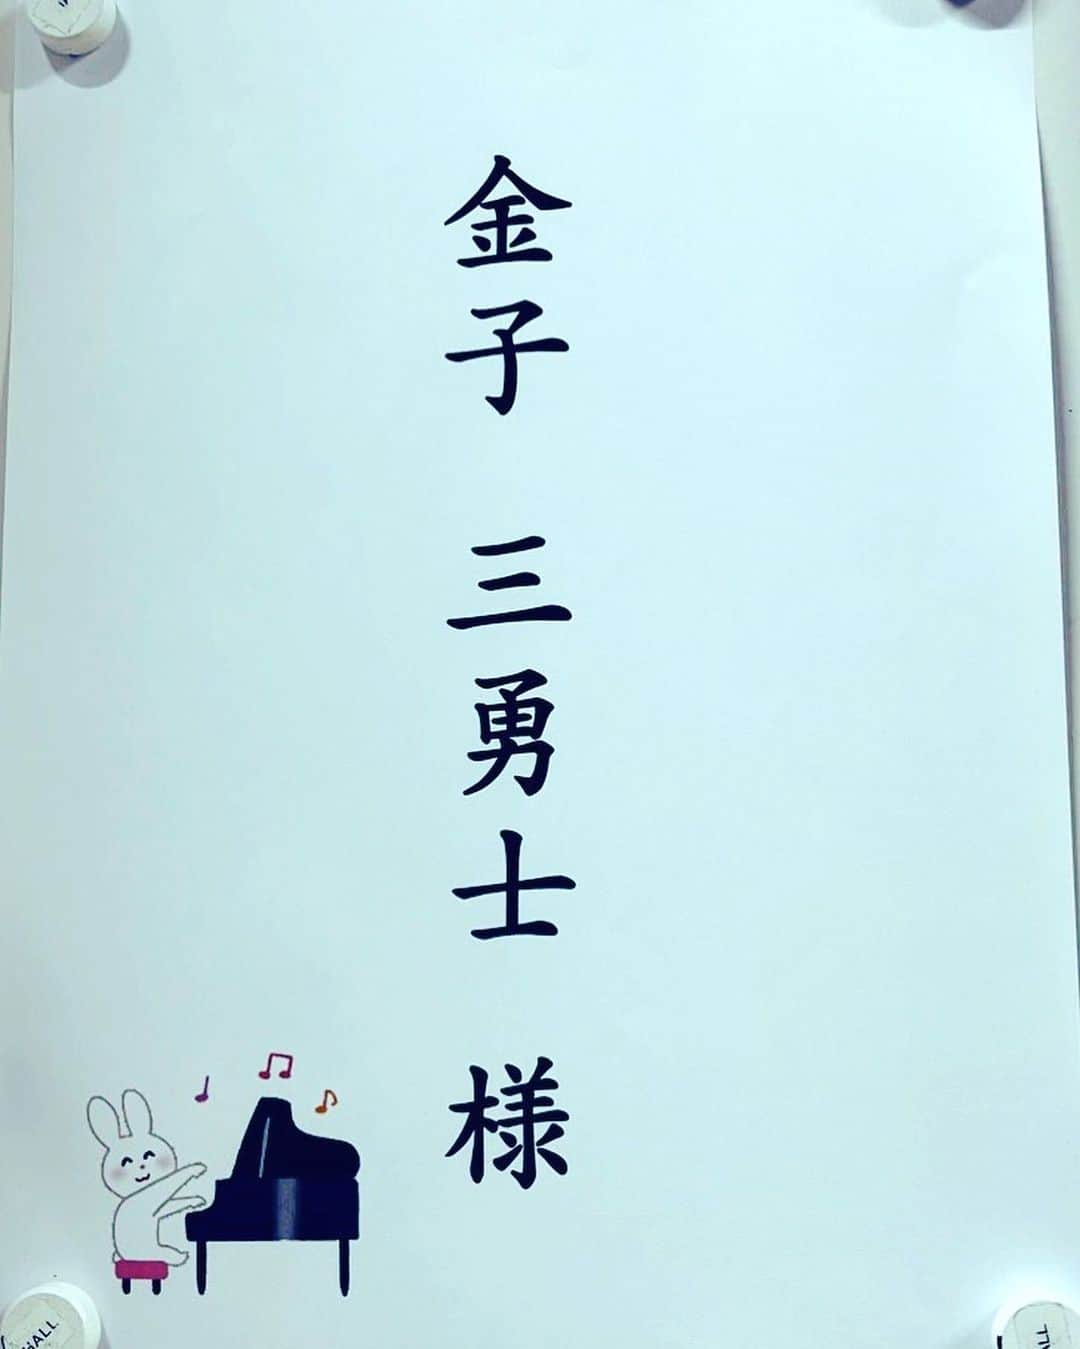 金子 三勇士 様
HALL